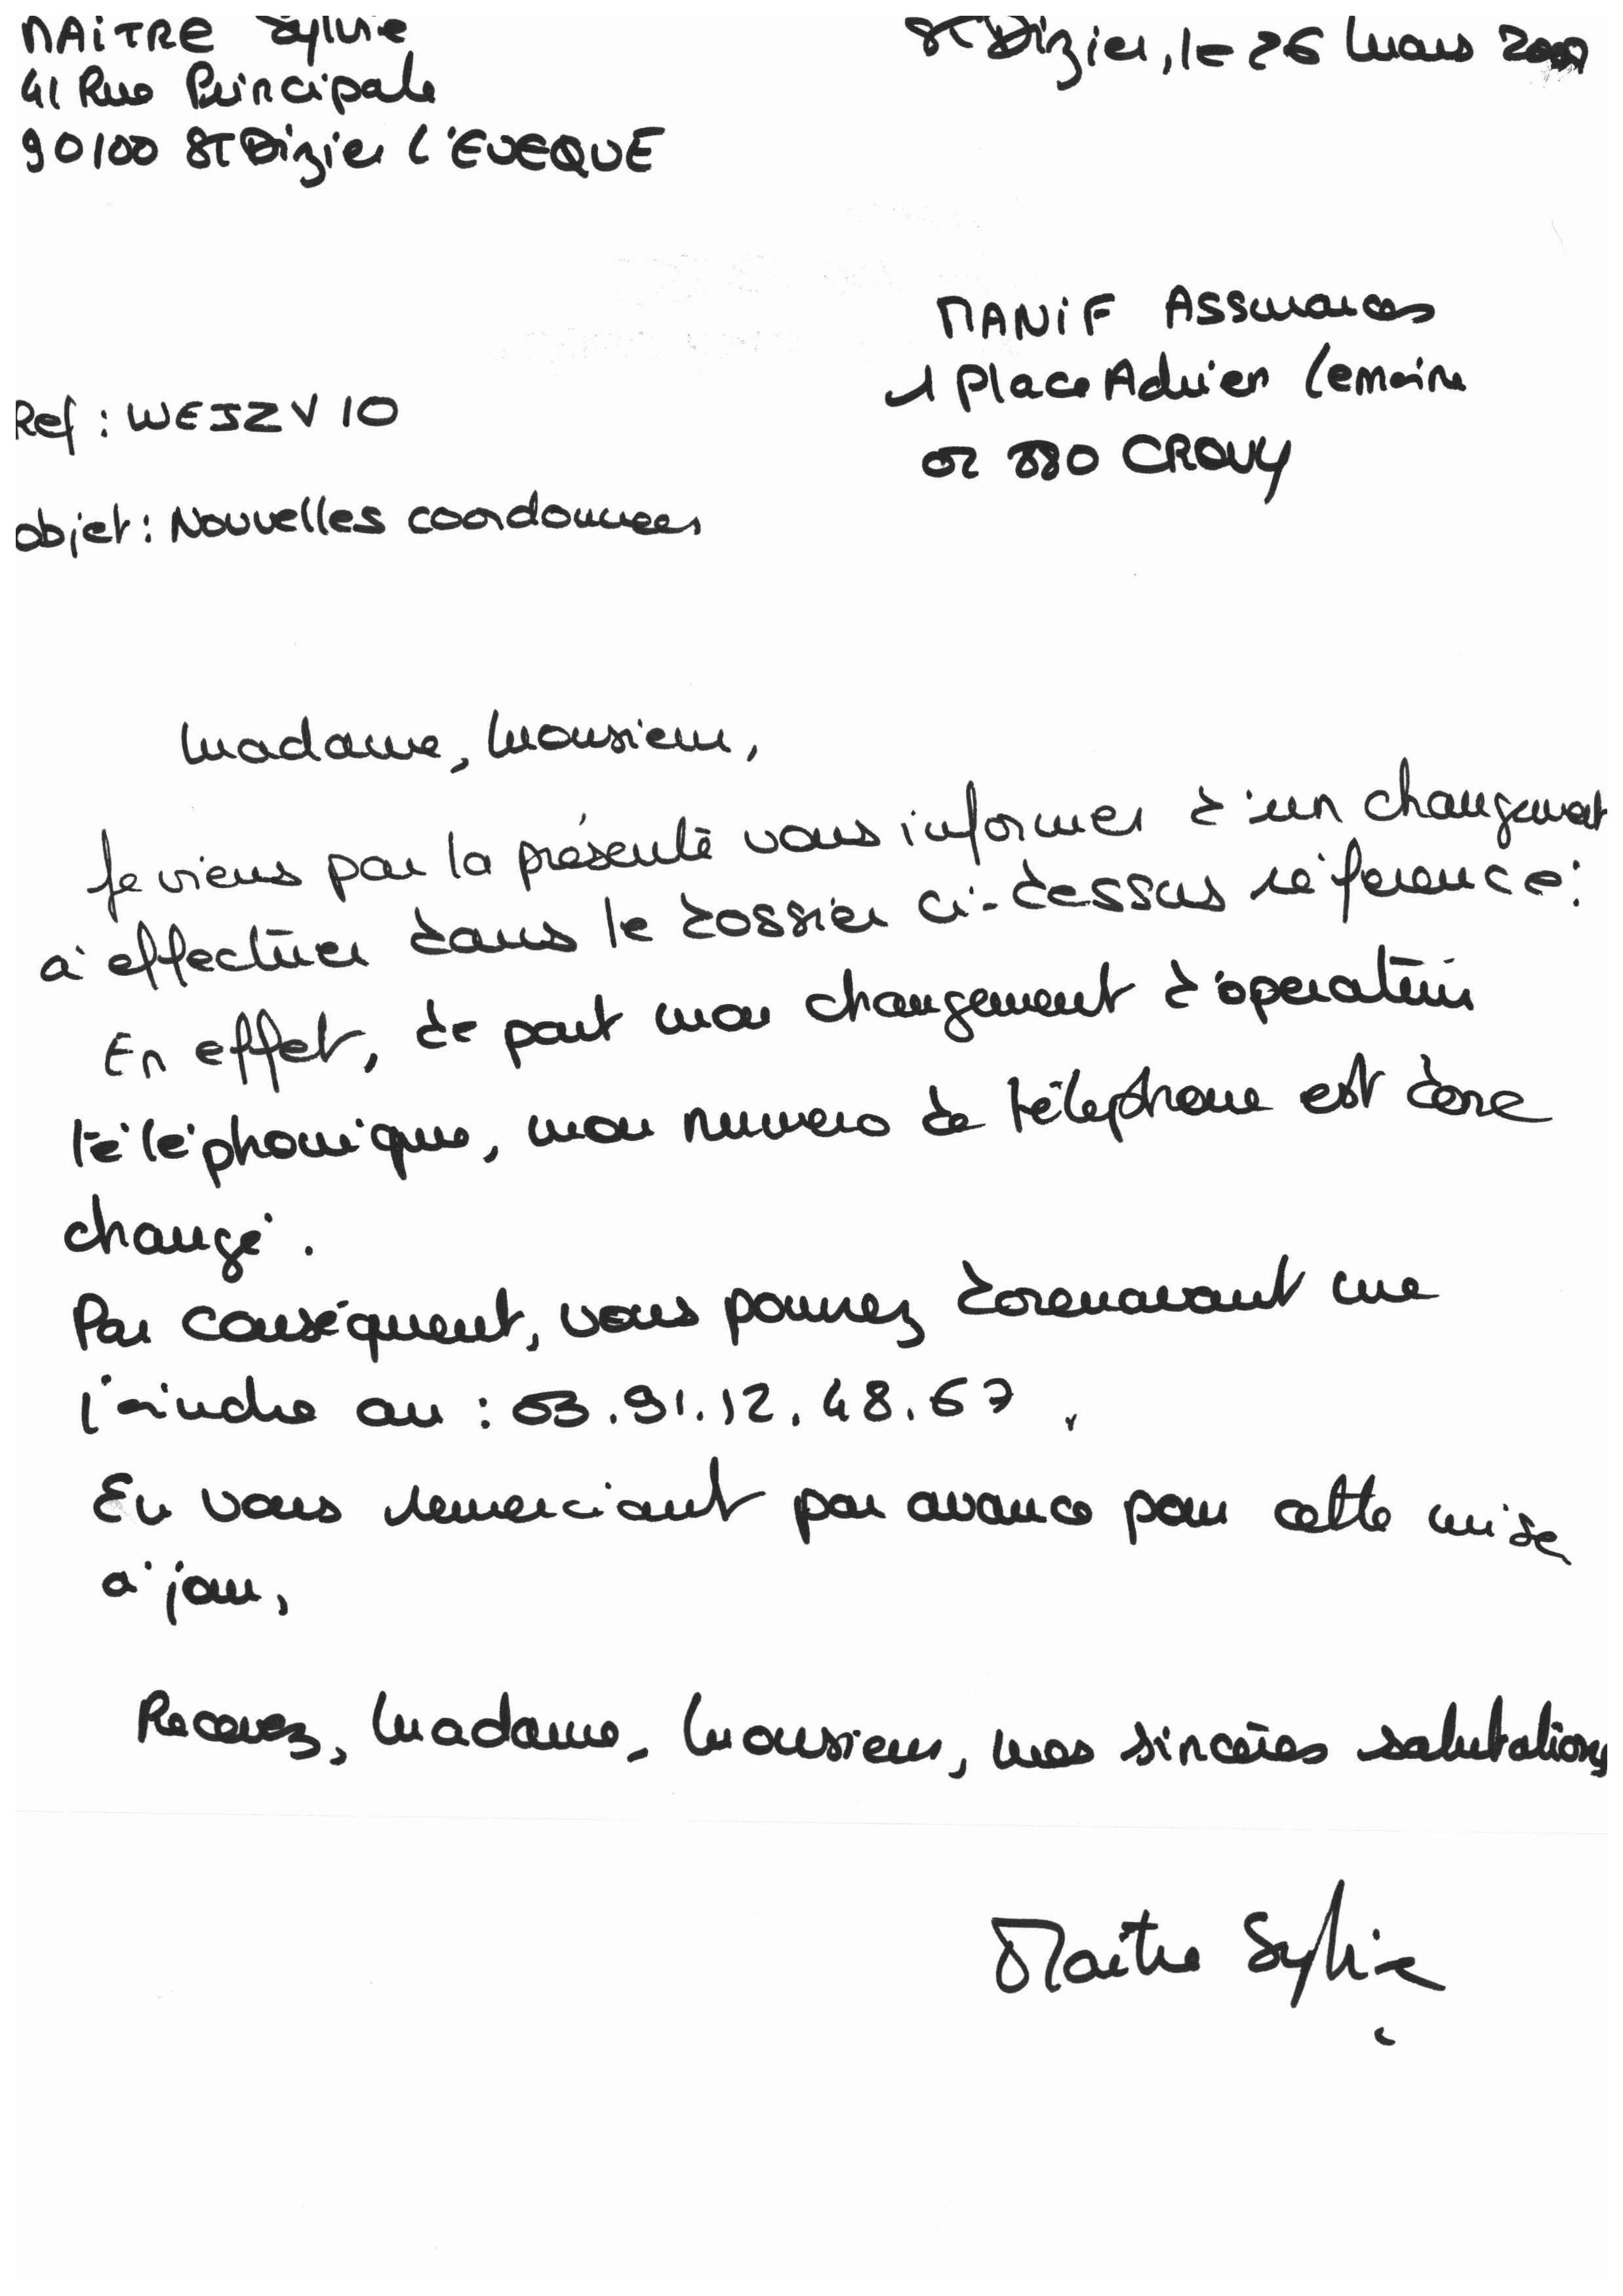 MAITRE Sylvie
41 Rue Principale
90100 St Dizier L'EVEQUE
St Dizier, le 26 mars
MANIF Assurances
1 Place Adrien Lemaire
02 880 CROUY
Ref : WEJZV10
objet : Nouvelles coordonnees
Madame, Monsieur,
Je viens par la présente vous informer d'un changement
à effectuer dans le dossier ci-dessus référence :
En effet, de part mon changement d'operateur
téléphonique, mon numero de téléphone est donc
changé.
Par conséquent, vous pourrez dorenavant me
joindre au : 03.91.12.48.67.
En vous remerciant par avance pour cette mise
à jour,
Recevez, Madame, Monsieur, mes sincères salutations
Maitre Sylvie